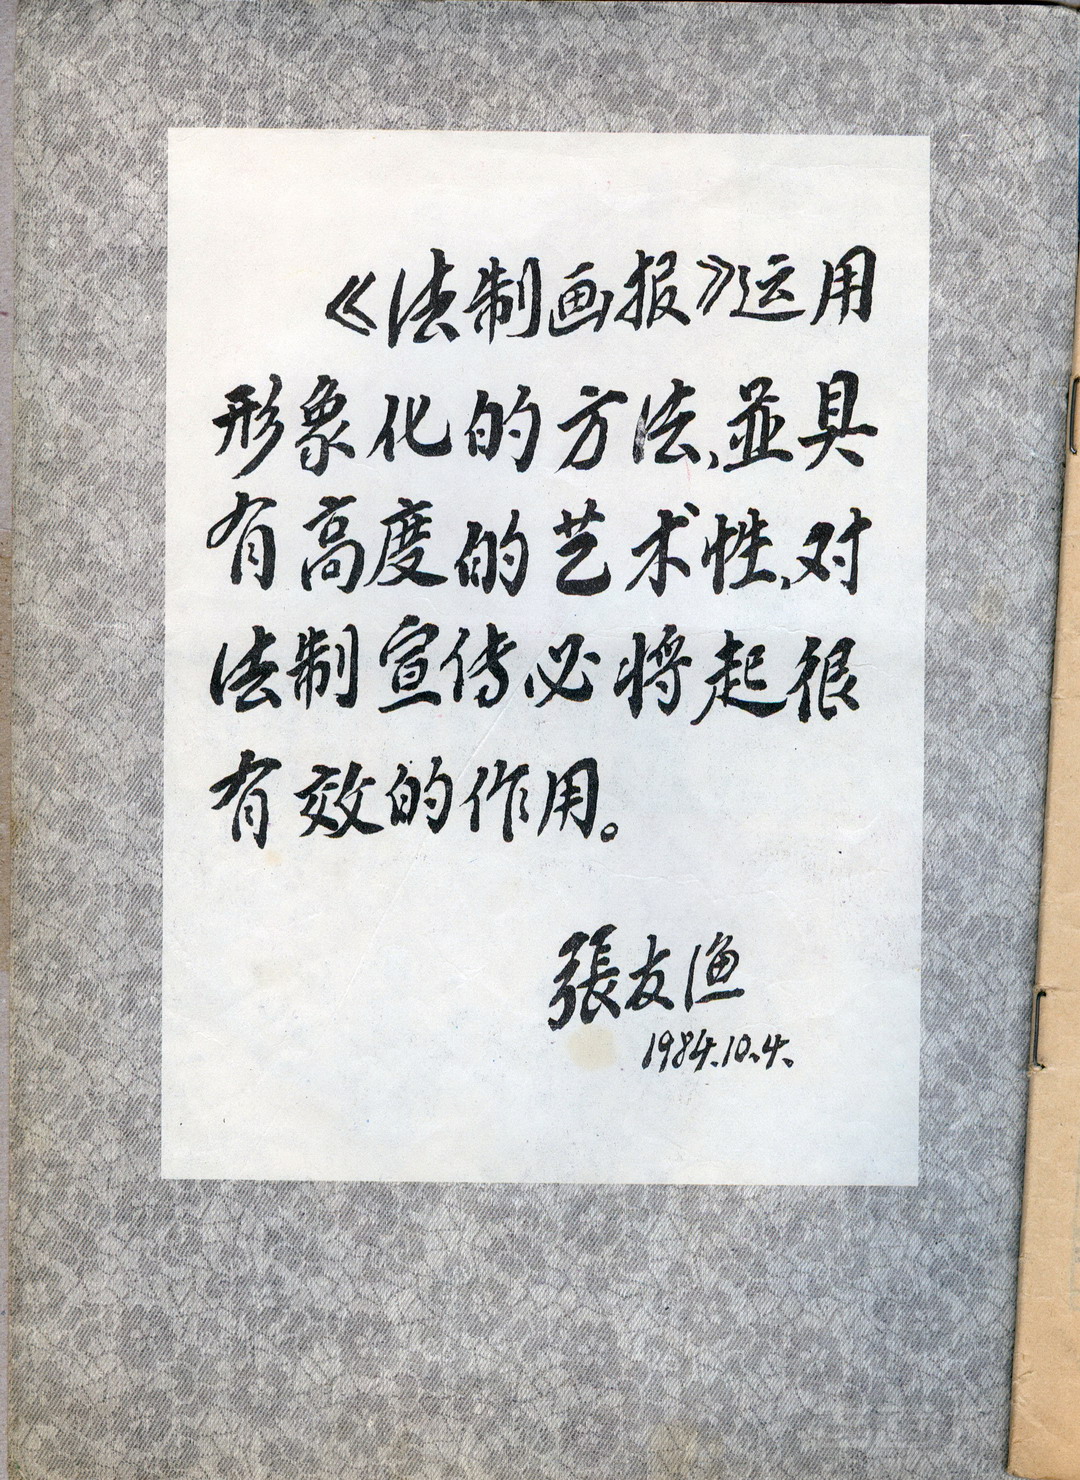 《法制画报》运用
形象化的方法、並具
有高度的艺术性、对
法制宣传必将起很
有效的作用。
張友渔
1984.10.4.